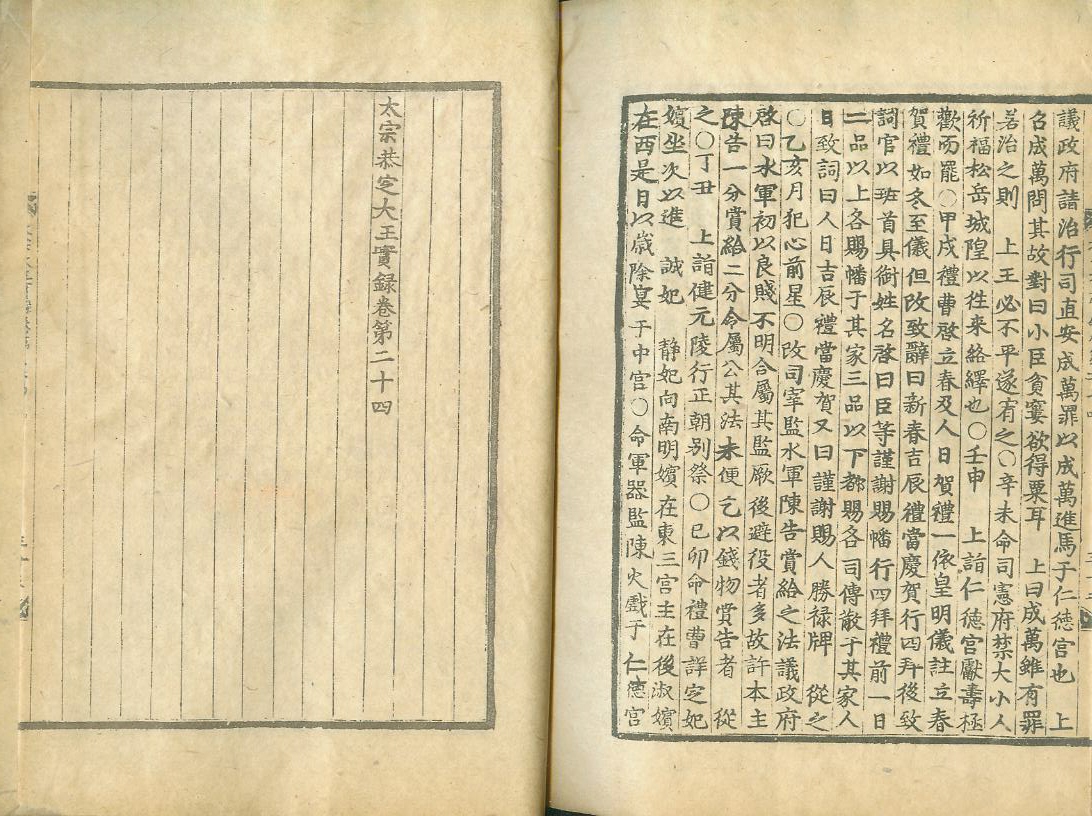 議政府請治行司直安成萬罪以成萬進馬于仁德宮也　上
召成萬問其故對曰小臣貧窶欲得粟耳　上曰成萬雖有罪
若治之則　上王必不平遂宥之○辛未命司憲府禁大小人
祈福松岳城隍以徃来絡繹也○壬申　上詣仁德宮獻壽極
歡而罷○甲戌禮曹啓立春及人日賀禮一依皇明儀註立春
賀禮如冬至儀但改致辭曰新春吉辰禮當慶賀行四拜後致
詞官以班首具銜姓名啓曰臣等謹謝賜幡行四拜禮前一日
二品以上各賜幡子其家三品以下都賜各司傳散于其家人
日致詞曰人日吉辰禮當慶賀又曰謹謝賜人勝祿牌　從之
○乙亥月犯心前星○改司宰監水軍陳告賞給之法議政府
啓曰水軍初以良賤不明合屬其監厥後避役者多故許本主
陳告一分賞給二分仝屬公其法未便乞以錢物賞告者　從
之○丁丑　上詣健元陵行正朝别祭○己卯命禮曹詳定妃
嬪坐次以進　誠妃　静妃向南明嬪在東三宮主在後淑嬪
在西是日以歲除宴于中宮○命軍器監陳火戲于　仁德宮
太宗恭定大王實録卷第二十四